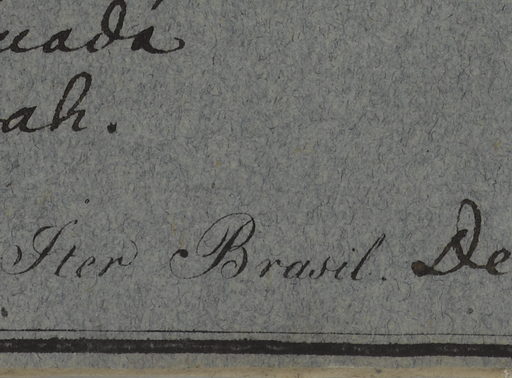 uadá
ah.
Iter Brasil. De